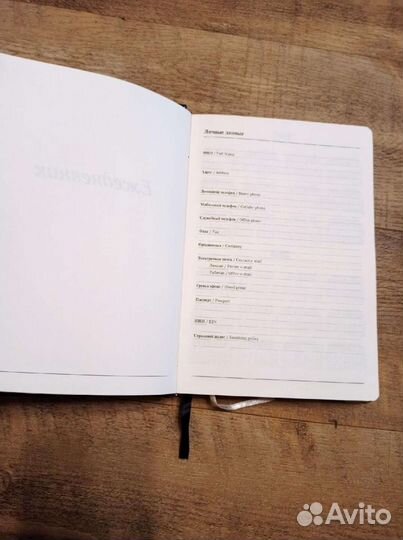 Ежедневник
Личные данные
ФИО / Full Name
Адрес / Address
Домашний телефон / Home phone
Мобильный телефон / Cellular phone
Служебный телефон / Office phone
Факс / Fax
Предприятие / Company
Электронная почта /
Личная / Private e-mail
Рабочая / Office e-mail
Группа крови / Blood group
Паспорт / Passport
ИНН /
Страховой полис /
Avito